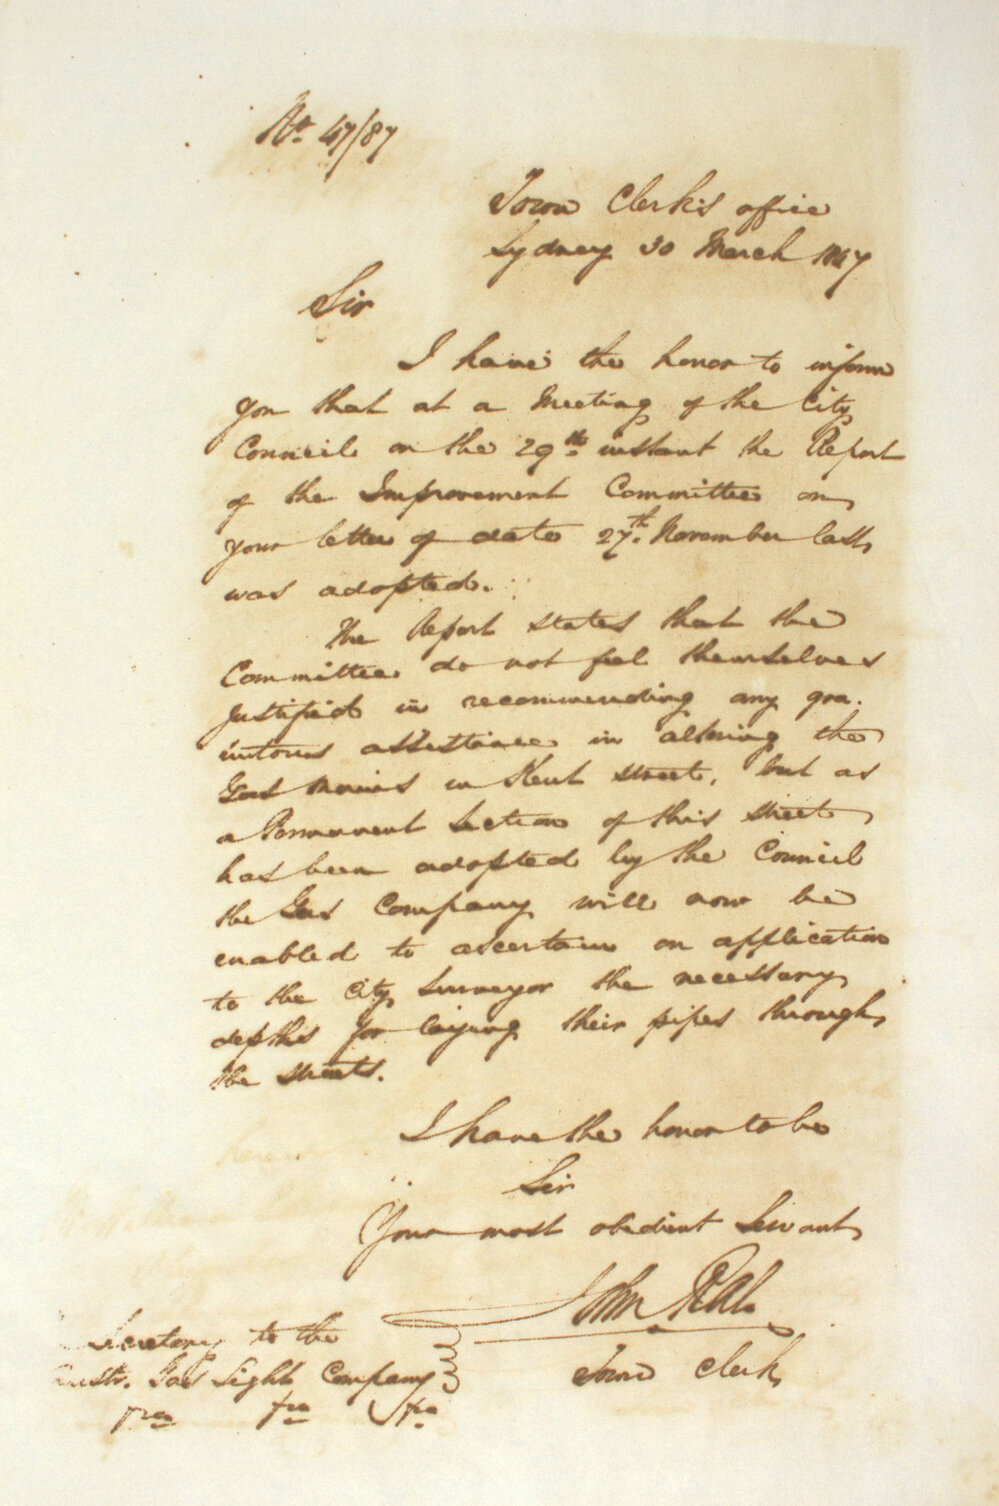 No. 47/87
Town Clerk's office
Sydney 30 March 1847
Sir
I have the honor to inform
you that at a Meeting of the City
Council on the 29th instant the Report
of the Improvement Committee on
your letter of date 27th November last
was adopted.
The Report states that the
Committee do not feel themselves
justified in recommending any gra-
tuitous assistance in altering the
Gas Mains in Kent street, but as
a Permanent Section of this street
has been adopted by the Council
the Gas Company will now be
enabled to ascertain on application
to the City Surveyor the necessary
depths for laying their pipes through
the streets.
I have the honor to be
Sir
Your most obedient Servant
John
Town Clerk
Secretary to the
Austr. Gas Light Company